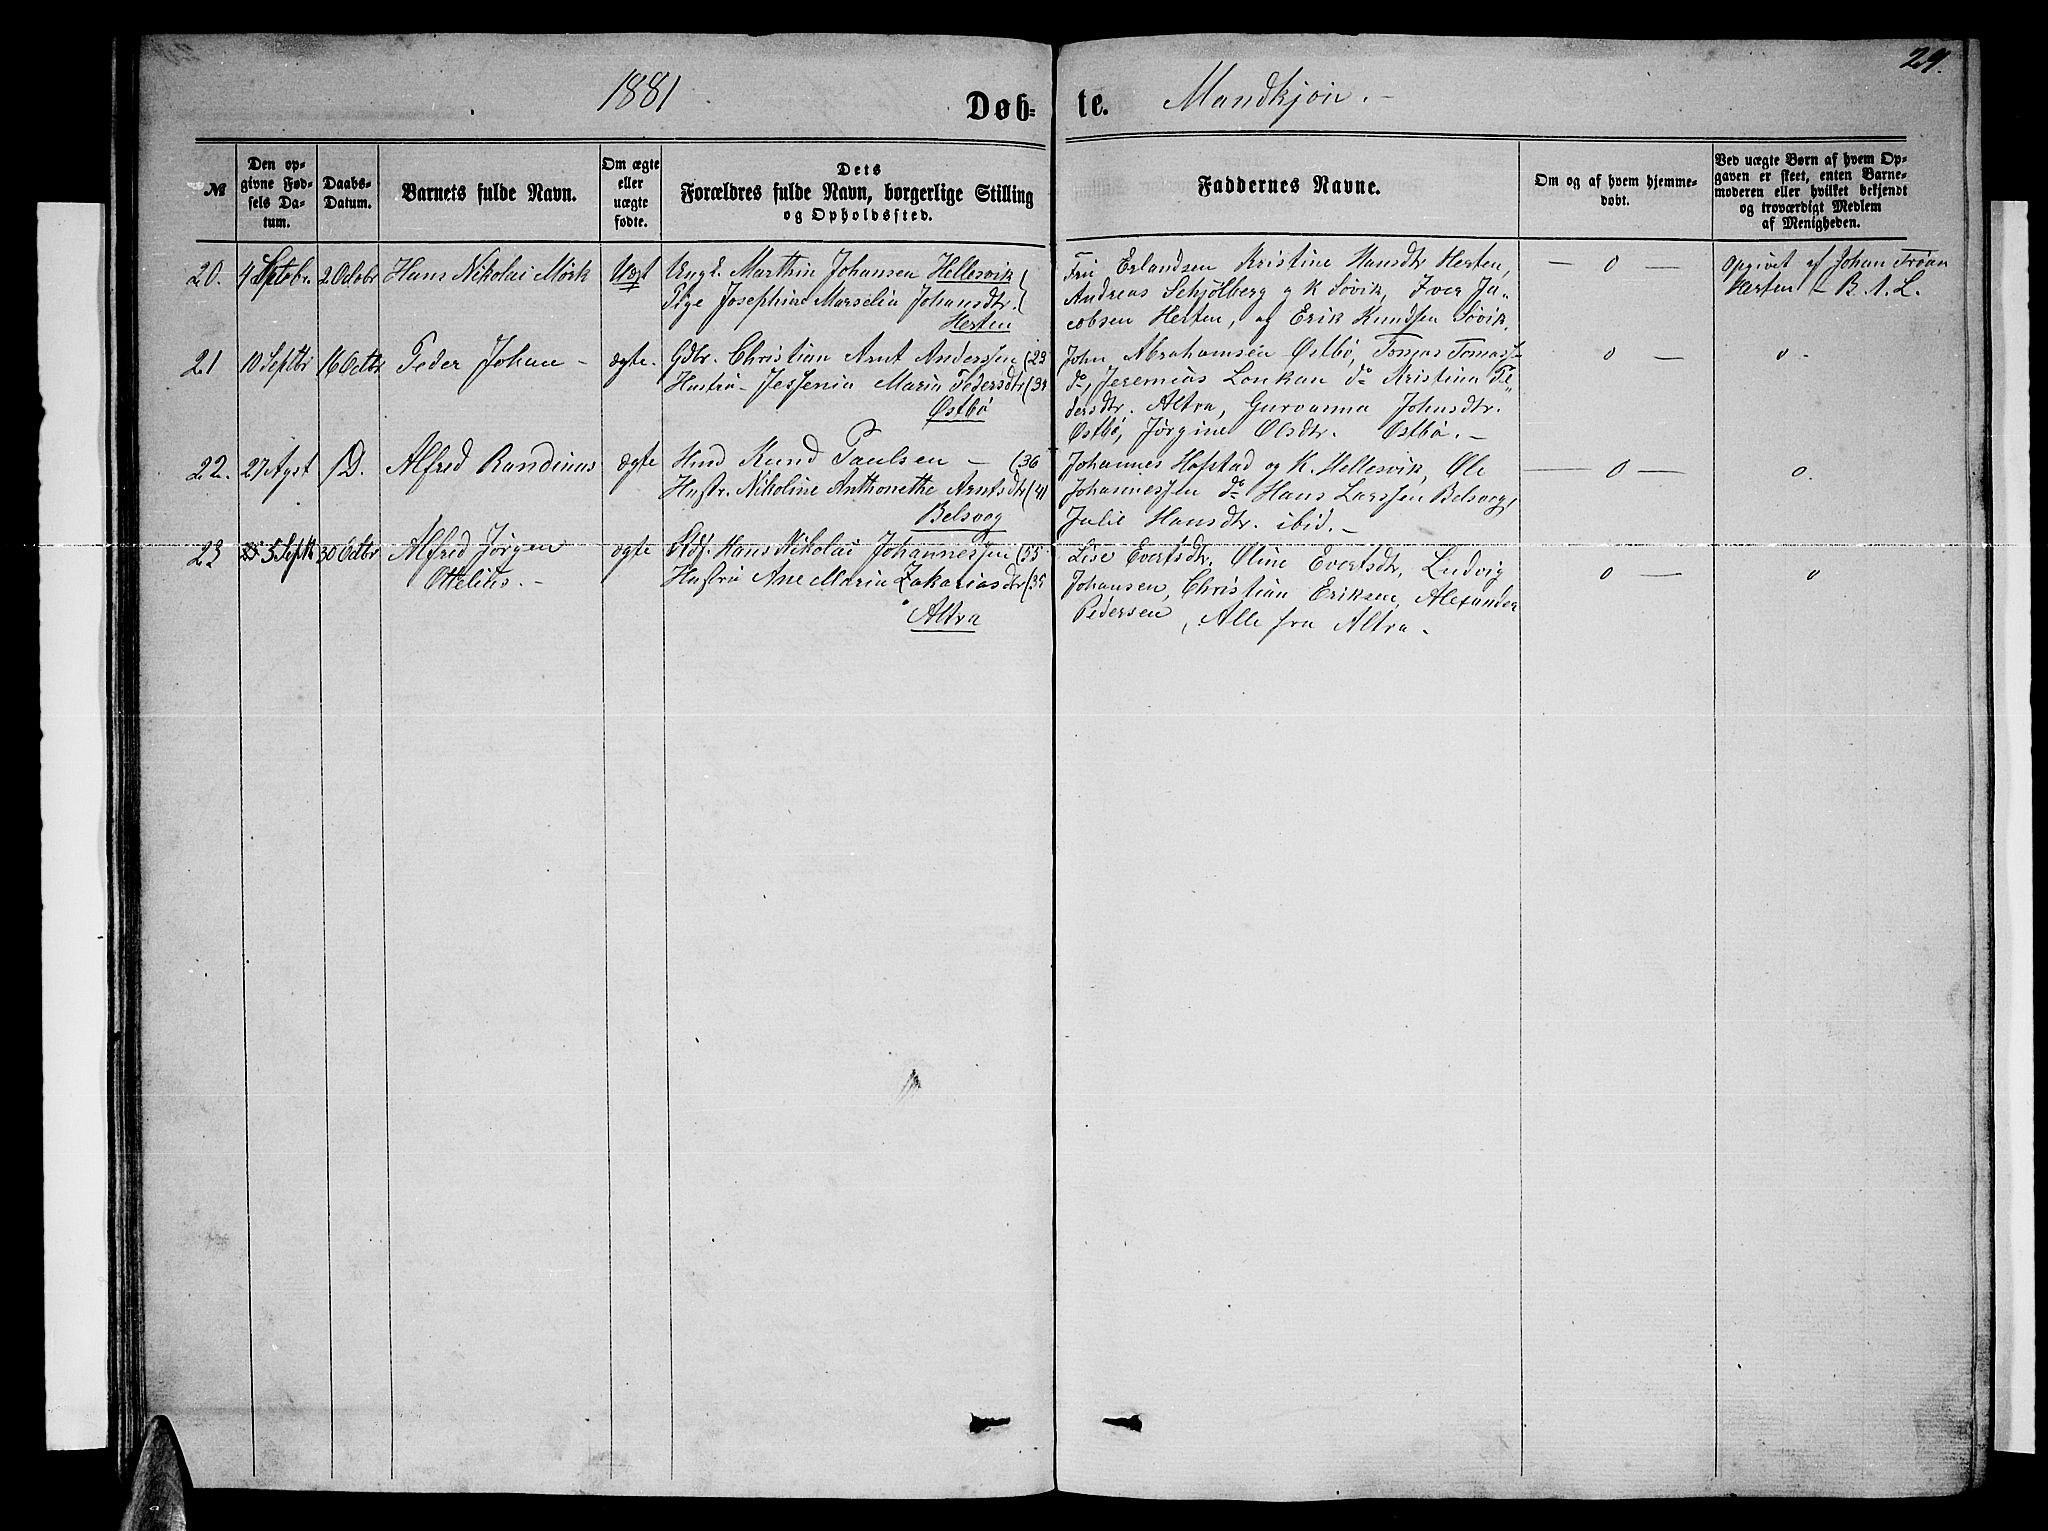 29.
1881 Døb- te. Mandkjøn. -
№
Den op-
givne Fød-
sels Da-
tum.
Daabs-
Datum.
Barnets fulde Navn.
Om ægte
eller
uægte
fødte.
Dets
Forældres fulde Navn, borgerlige Stilling
og Opholdssted.
Faddernes Navne.
Om og af hvem hjemme-
døbt.
Ved uægte Børn af hvem Op-
gaven er skeet, enten Barne-
moderen eller hvilket bekjendt
og troværdigt Medlem
af Menigheden.
20. 4 Septbr. 2 Octobr Hans Nikolai Mörk Uægt Ungk. Marthin Johansen Hellesvik
Pige Josephine Marselia Johansdtr.
Herten
Fru Erlandsen Kristine Hansdtr Herten,
Andreas Schjölberg og K Sövik, Iver Ja-
cobsen Herten, og Erik Knudsen Sövik.
— 0 —
Opgivet af Johan Tröan
Herten - B. A. L.
21 10 Septbr 16 Octbr Peder Johan - ægte. Gdbr. Christian Arnt Anderssen (29
Hustru - Jessenia Maria Pedersdtr (39
Østbö
John Abrahamsen Østbö, Tomas Tomass-
do, Jeremias Lonkan do Kristina Pe-
dersdtr. Altra, Gurvanna Johnsdtr.
Østbö, Jörgine Olsdtr. Østbö. -
0 —
0 -
22. 27 Agst D. Alfred Randinus ægte Hmd Knud Paulsen - (36
Hustr. Nikoline Anthonethe Arntsdtr (41
Belsvog
Johannes Hofstad og K. Hellesvik, Ole
Johannessen do Hans Larssen Belsvog,
Julie Hansdtr. ibid. -
— 0 —
0.
23 5 Septb 30 Octbr Alfred Jörgen ægte Hans Nikolai Johannessen (55
Ottelius. - Hustru Ane Maria Zakariasdtr (35
Altra
Lise Evertsdtr. Oline Evertsdtr. Ludvig
Johansen, Christian Eriksen, Alexander
Pedersen, Alle fra Altra.
0 —
0